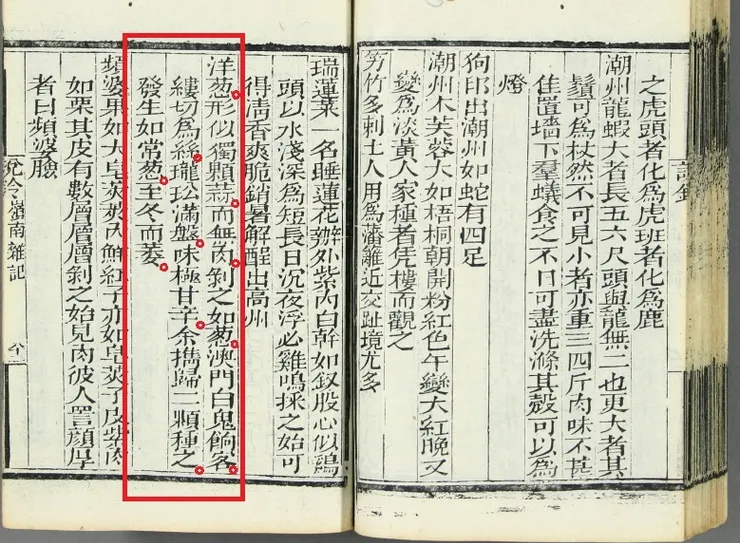 之虎頭者化為虎班者化為鹿
潮州龍蝦大者長五六尺頭與龍無二也更大者其
鬚可為杖然不可見小者亦重三四斤肉味不甚
佳置墻下羣蟻食之不日可盡洗滌其殼可以為
燈
狗印出潮州如蛇有四足
潮州木芙蓉大如梧桐朝開粉紅色午變大紅晚又
變為淡黃人家種者凭樓而觀之
竻竹多刺土人用為藩離近交趾境尤多
瑞蓮菜一名睡蓮花瓣外紫內白幹如釵股心似鷄
頭以水淺深為短長日沉夜浮必雞鳴採之始可
得清香爽脆銷暑解酲出高州
洋葱形似獨顆蒜而無肉剝之如葱澳門白鬼餉客
縷切為絲瓏玜滿盤味極甘辛余擕歸二顆種之
發生如常葱至冬而萎
頻婆果如大皂莢莢內鮮紅子亦如皂莢子皮紫肉
如栗其皮有數層層層剝之始見肉彼人詈顏厚
者曰頻婆臉
說鈴
說鈴嶺南雜記